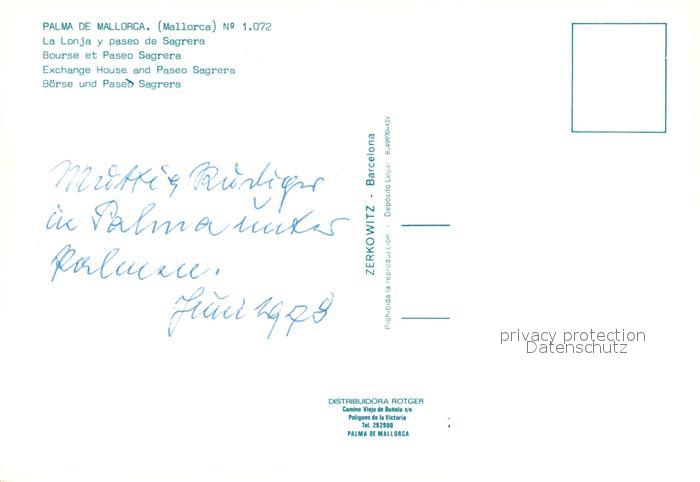 PALMA DE MALLORCA. (Mallorca) Nº 1.072
La Lonja y paseo de Sagrera
Bourse et Paseo Sagrera
Exchange House and Paseo Sagrera
Börse und Paseo Sagrera
Mutti & Rüdiger
in Palma unter
Palmen.
Juni 1978
ZERKOWITZ - Barcelona
Prohibida la reproducción - Depósito Legal B.49970-XIV
privacy protection
Datenschutz
DISTRIBUIDORA ROTGER
Camino Viejo de Buñola s/n
Polígono de la Victoria
Tel. 292900
PALMA DE MALLORCA